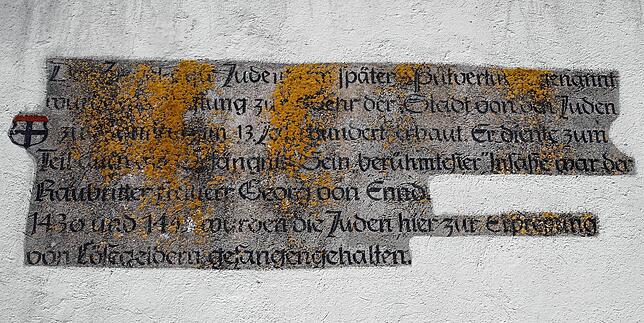 Juden später genannt
zur Wehr der Stadt von den Juden
im 13. Jahrhundert erbaut. Er diente zum
Teil auch als Gefängnis. Sein berühmtester Insaße war der
Raubritter Georg von Ennd.
1430 und wurden die Juden hier zur Erpressung
von Lösegeldern gefangengehalten.